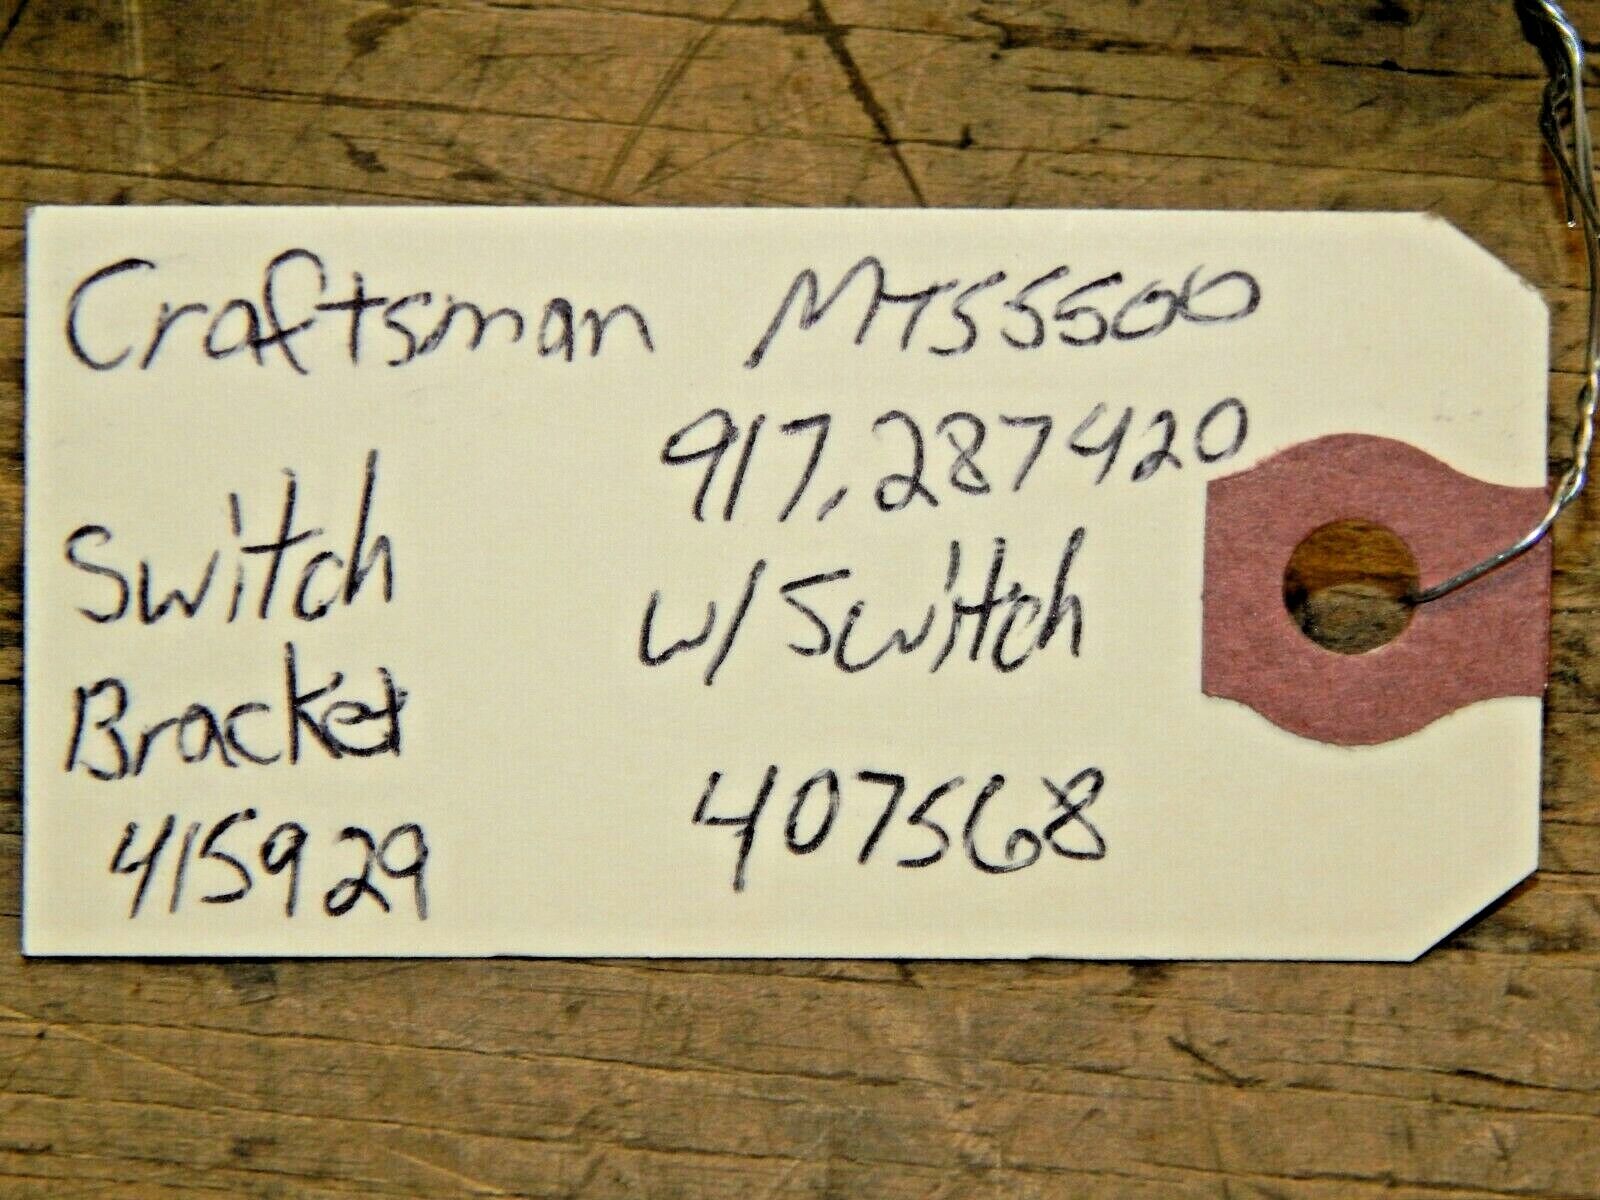 Craftsman MTS5500
917.287420
Switch w/ Switch
Bracket
415929 407568